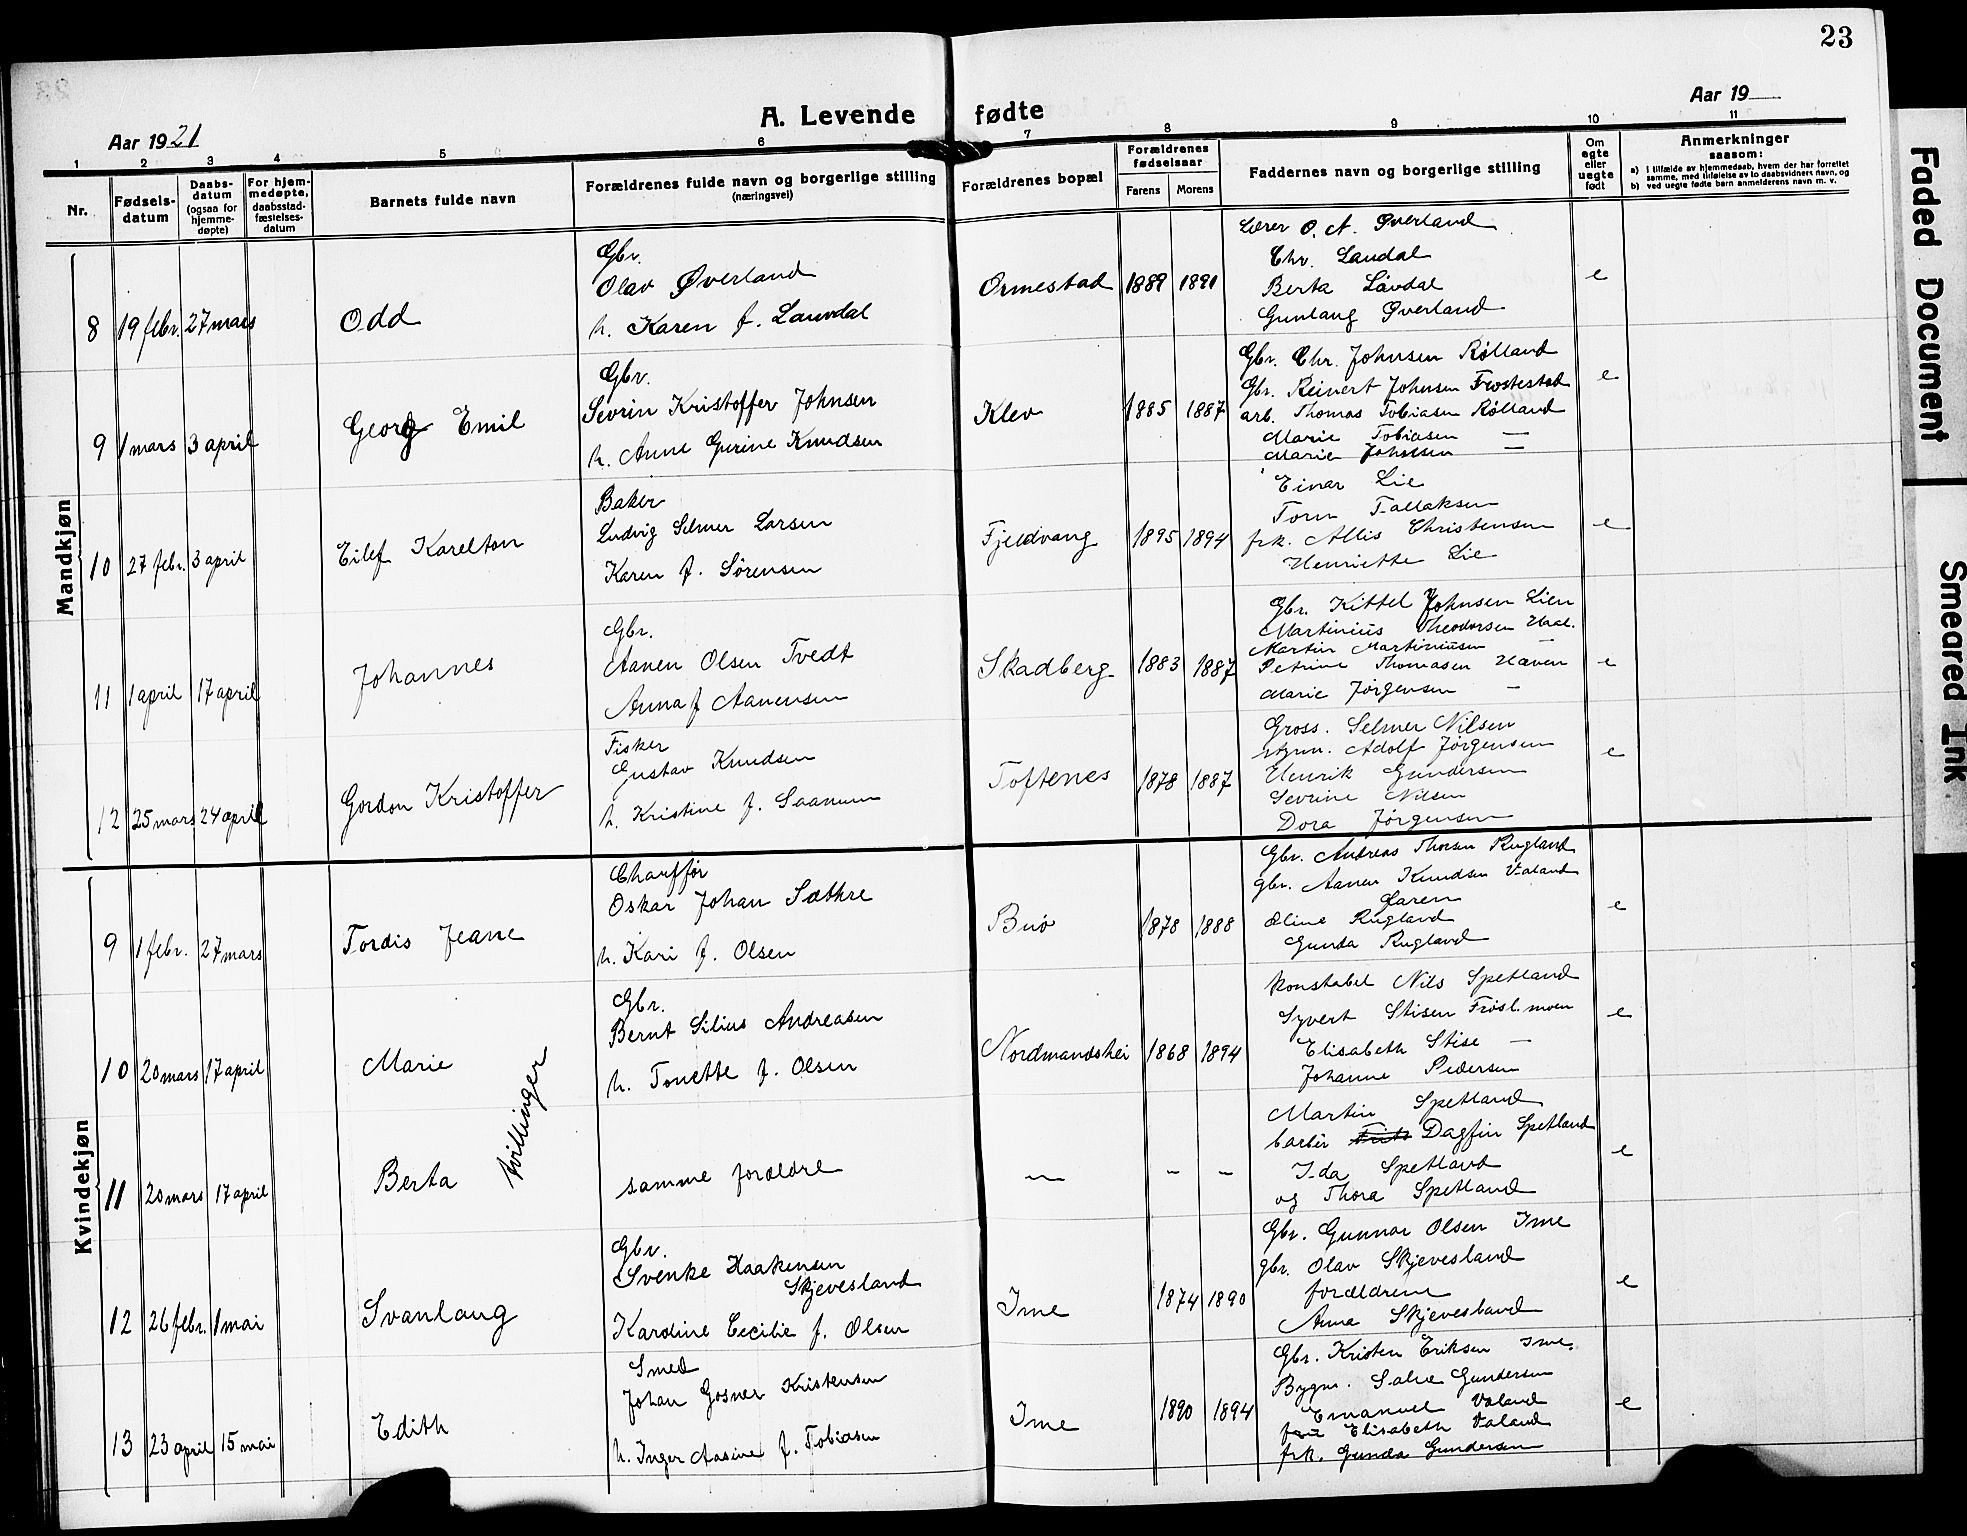 23
A. Levende fødte
Aar 1921
Aar 19
1 2 3 4 5 6 7 8 9 10 11
Nr.
Fødsels-
datum
Daabs-
datum
(ogsaa for
hjemme-
døpte)
For hjem-
medøpte,
daabsstad-
fæstelses-
datum
Barnets fulde navn
Forældrenes fulde navn og borgerlige stilling
(næringsvei)
Forældrenes bopæl
Forældrenes
fødselsaar
Farens Morens
Faddernes navn og borgerlige stilling
Om
egte
eller
uegte
født
Anmerkninger
saasom:
a) i tilfælde av hjemmedaab, hvem der har forrettet
samme, med tilføielse av to daabsvidners navn, og
b) ved uegte fødte barn anmelderens navn m. v.
Mandkjøn
8 19 febr. 27 mars
Odd
Gbr.
Olav Øverland
h. Karen f. Lauvdal
Ormestad 1889 1891
Lærer O. A. Øverland
Chr. Laudal
Berta Løvdal
Gunlaug Øverland
e
9 1 mars 3 april
Georg Emil
Gbr.
Sevrin Kristoffer Johnsen
h. Anne Gurine Knudsen
Klev 1885 1887
Gbr. Chr. Johnsen Rølland
Gbr. Reinert Johnsen Frostestad
arb. Thomas Tobiasen Rølland
Marie Tobiasen —
Marie Johnsen —
e
10 27 febr. 3 april
Eilef Karelton
Baker
Ludvig Selmer Larsen
Karen f. Sørensen
Fjeldvang 1895 1894
Einar Lie
Tom Tallaksen
frk. Allis Christensen
Henriette Lie
e
11 1 april 17 april
Johannes
Gbr.
Aanen Olsen Tvedt
Anna f Aanensen
Skadberg 1883 1887
Gbr. Kittel Johnsen Lien
Martinius Theodorsen
Martin Martiniusen —
Petrine Thomasen Haven
Marie Jørgensen —
e
12 25 mars 24 april
Gordon Kristoffer
Fisker
Gustav Knudsen
h. Kristine f. Saanum
Toftenes 1878 1887
Gross. Selmer Nilsen
styrm. Adolf Jørgensen
Henrik Gundersen
Sevrine Nilsen
Dora Jørgensen
e
Kvindekjøn
9 1 febr. 27 mars
Tordis Jeane
Chaufför
Oskar Johan Sæthre
h. Kari f. Olsen
Buø 1878 1888
Gbr. Andreas Thorsen Rugland
gbr. Aanen Knudsen Valand
faren
Oline Rugland
Gunda Rugland
e
10 20 mars 17 april
Marie
tvillinger
Gbr.
Bernt Silius Andreasen
h. Tonette f. Olsen
Nordmandshei 1868 1894
Konstabel Nils Spetland
Syvert Stisen Frøsl.moen
Elisabeth Stise —
Johanne Pedersen
e
11 20 mars 17 april
Berta
samme forældre
— — —
Martin Spetland
barber Dagfin Spetland
Ida Spetland
og Thora Spetland
e
12 26 febr. 1 mai
Svanlaug
Gbr.
Svenke Haakensen
Skjevesland
Karoline Cecilie f. Olsen
Ime 1874 1890
Gbr. Gunnar Olsen Ime
gbr. Olav Skjevesland
forældrene
Anna Skjevesland
e
13 23 april 15 mai
Edith
Smed
Johan Gosner Kristensen
h. Inger Aasine f. Tobiasen
Ime 1890 1894
Gbr. Kristen Eriksen Ime.
Bygm. Salve Gundersen
Emanuel Valand
Elisabeth Valand
frk. Gunda Gundersen
e
Faded Document
Smeared Ink.